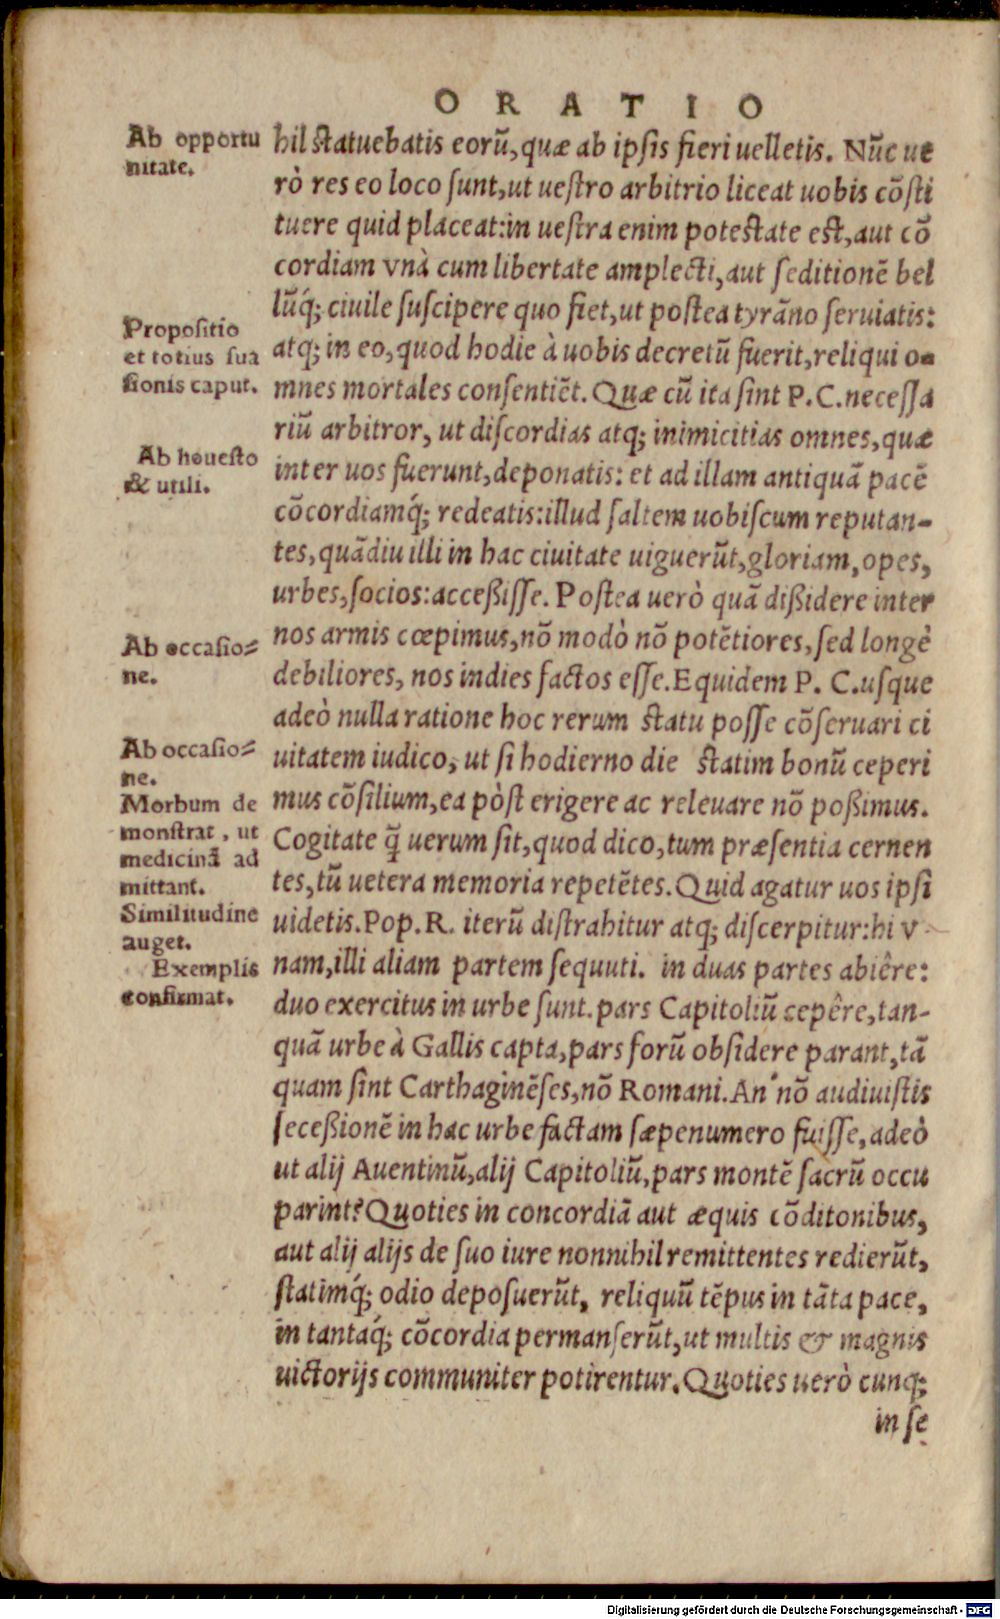 ORATIO
Ab opportu
nitate.
Propositio
et totius sua
sionis caput.
Ab houesto
& utili.
Ab occasio=
ne.
Ab occasio=
ne.
Morbum de
monstrat, ut
medicinã ad
mittant.
Similitudine
auget.
Exemplis
confirmat.
hil statuebatis eorũ, quæ ab ipsis fieri uelletis. Nũc ue
rò res eo loco sunt, ut uestro arbitrio liceat uobis cõsti
tuere quid placeat: in uestra enim potestate est, aut cõ
cordiam vnà cum libertate amplecti, aut seditionẽ bel
lũq́; ciuile suscipere quo fiet, ut postea tyrãno seruiatis:
atq; in eo, quod hodie à uobis decretũ fuerit, reliqui o=
mnes mortales consentiẽt. Quæ cũ ita sint P. C. necessa
riũ arbitror, ut discordias atq; inimicitias omnes, quæ
inter uos fuerunt, deponatis: et ad illam antiquã pacẽ
cõcordiamq́; redeatis: illud saltem uobiscum reputan-
tes, quãdiu illi in hac ciuitate uiguerũt, gloriam, opes,
urbes, socios: acceßisse. Postea uerò quã dißidere inter
nos armis cœpimus, nõ modò nõ potẽtiores, sed longè
debiliores, nos indies factos esse. Equidem P. C. usque
adeò nulla ratione hoc rerum statu posse cõseruari ci
uitatem iudico, ut si hodierno die statim bonũ ceperi
mus cõsilium, ea pòst erigere ac releuare nõ poßimus.
Cogitate q̃ uerum sit, quod dico, tum præsentia cernen
tes, tũ uetera memoria repetẽtes. Quid agatur uos ipsi
uidetis. Pop. R. iterũ distrahitur atq; discerpitur: hi v
nam, illi aliam partem sequuti. in duas partes abiêre:
duo exercitus in urbe sunt. pars Capitoliũ cepêre, tan-
quã urbe à Gallis capta, pars forũ obsidere parant, tã
quam sint Carthaginẽses, nõ Romani. An nõ audiuistis
seceßionẽ in hac urbe factam sæpenumero fuisse, adeò
ut alij Auentinũ, alij Capitoliũ, pars montẽ sacrũ occu
parint? Quoties in concordiã aut æquis cõditonibus,
aut alij alijs de suo iure nonnihil remittentes redierũt,
statimq́; odio deposuerũt, reliquũ tẽpus in tãta pace,
in tantaq́; cõcordia permanserũt, ut multis & magnis
uictorijs communiter potirentur. Quoties uerò cunq;
in se
Digitalisierung gefördert durch die Deutsche Forschungsgemeinschaft - DFG